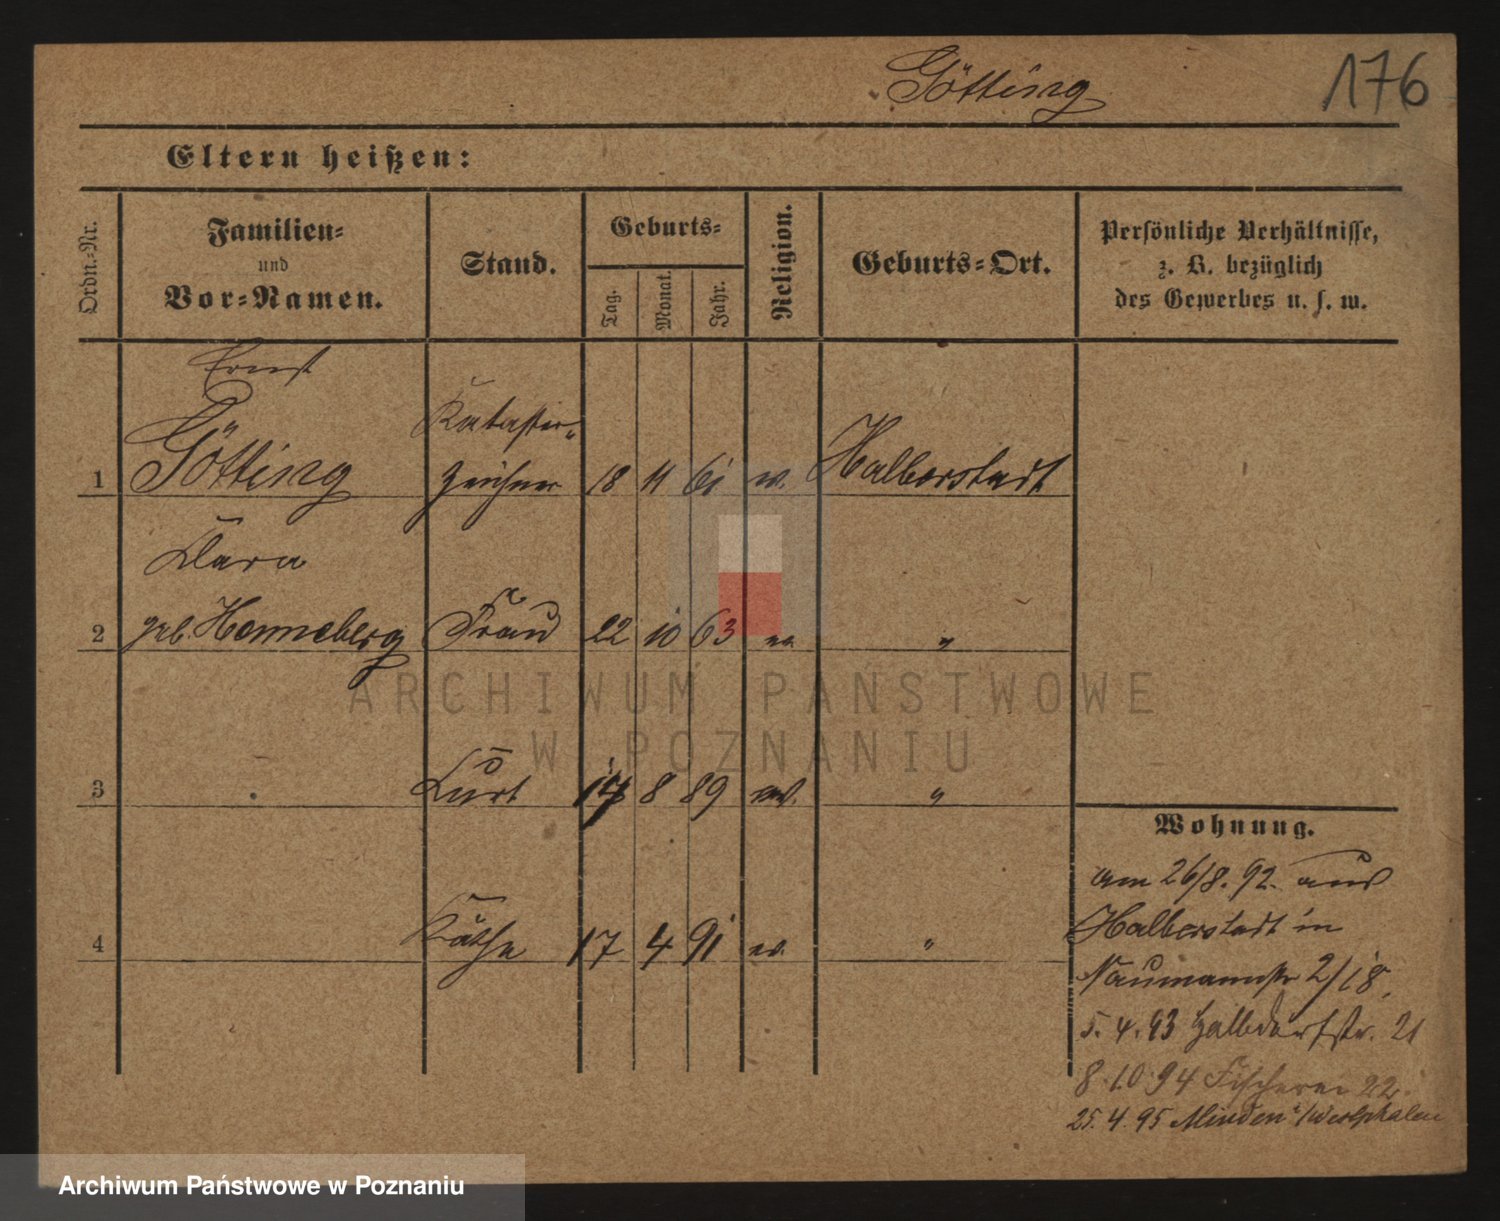 Götting
176
Eltern heißen:
Ordn.-Nr.
Familien-
und
Vor-Namen.
Stand.
Geburts-
Tag.
Monat.
Jahr.
Religion.
Geburts-Ort.
Persönliche Verhältnisse,
z. B. bezüglich
des Gewerbes u. s. w.
Ernst
Kataster-
1 Götting zeichner 18 11 61 ev. Halberstadt
Clara
2 geb. Henneberg Frau 22 10 63 ev. "
3 Curt 14 8 89 ev. "
4 Käthe 17 4 91 ev. "
Wohnung.
am 26/8. 92. aus
Halberstadt in
Naumannstr 2/18,
5. 4. 93 Halbdorfstr. 21
8 10 94 Fischerei 22.
25. 4. 95 Minden i/Westphalen
ARCHIWUM PAŃSTWOWE
W POZNANIU
Archiwum Państwowe w Poznaniu